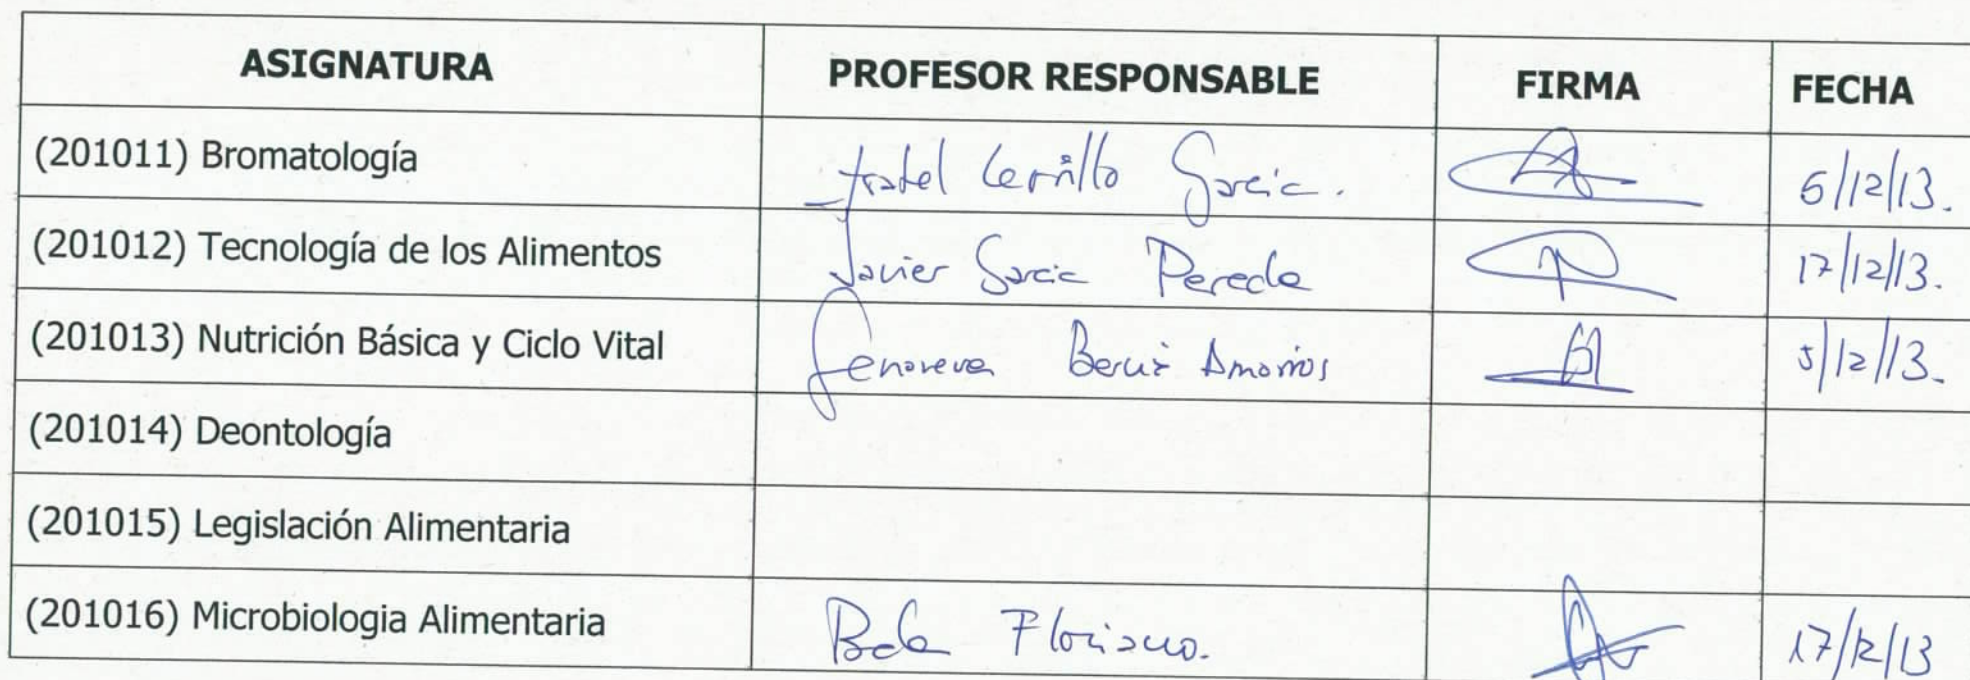 ASIGNATURA PROFESOR RESPONSABLE FIRMA FECHA
(201011) Bromatología García. 6/12/13.
(201012) Tecnología de los Alimentos Javier García Pereda 17/12/13.
(201013) Nutrición Básica y Ciclo Vital Genoveva Amorós 5/12/13.
(201014) Deontología
(201015) Legislación Alimentaria
(201016) Microbiologia Alimentaria 17/12/13